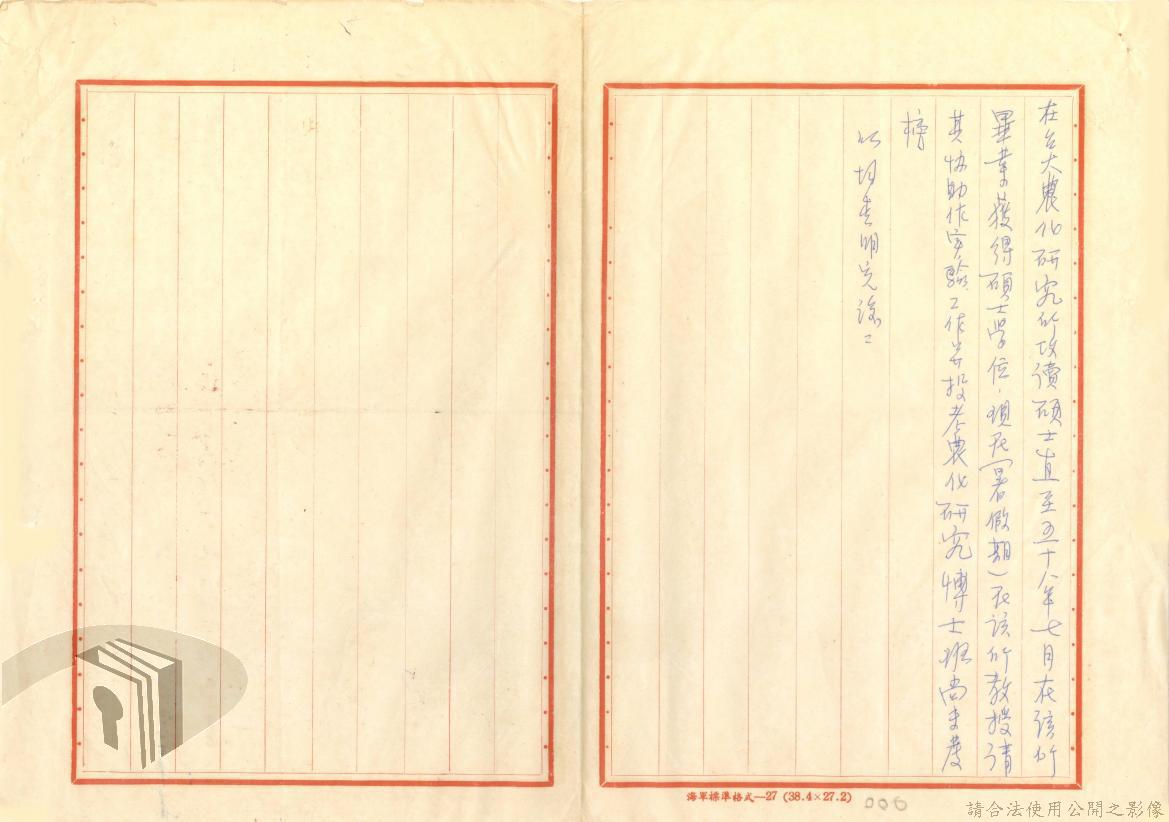 在台大農化研究所攻讀碩士直至五十八年七月在該所
畢業獲得碩士學位，現在(暑假期)在該所教授請
其協助作實驗工作并投考農化研究博士班尚未發
榜
以切查明完談二
海軍標準格式—27 (38.4×27.2)
006
請合法使用公開之影像